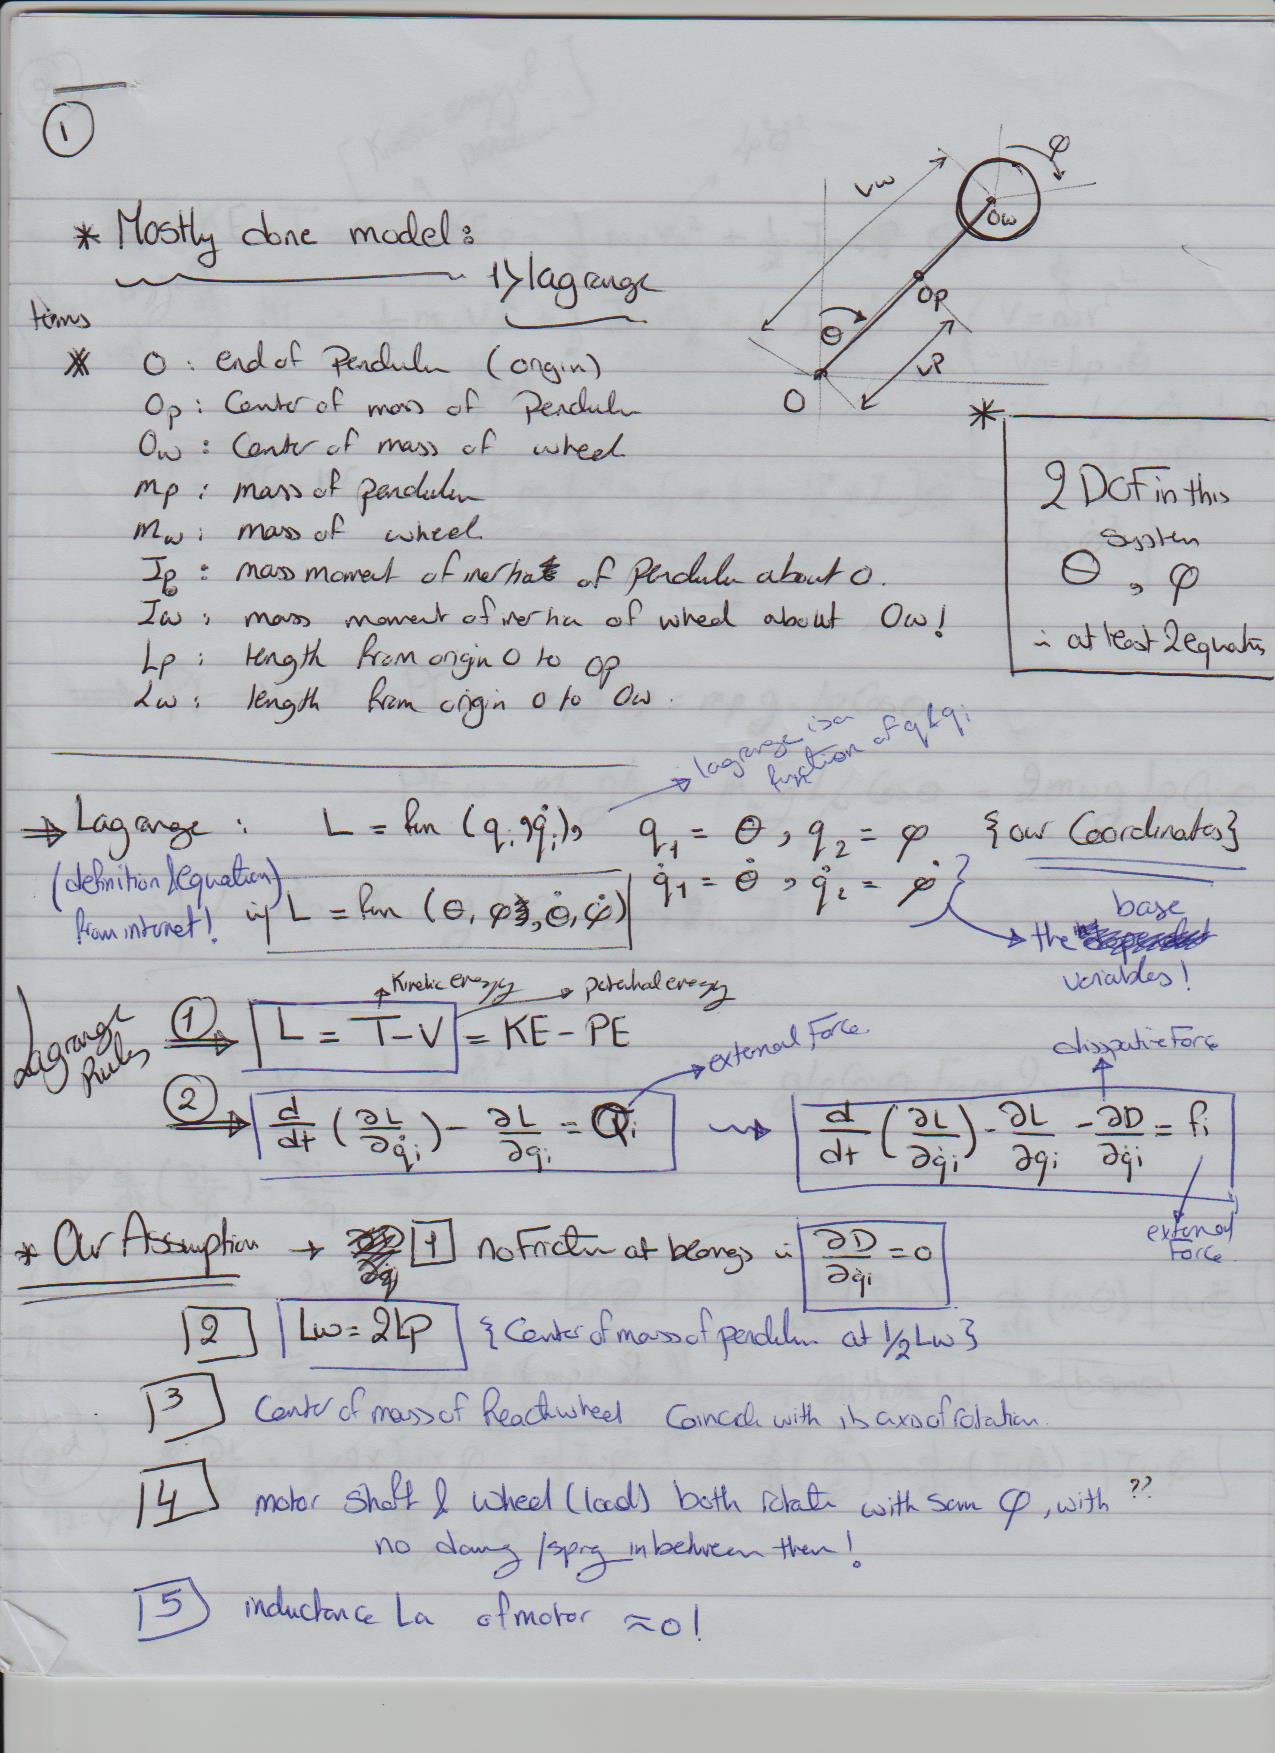 1
* Mostly done model:
1> lagrange
terms
* O : end of Pendulum (origin)
Op : Center of mass of Pendulum
Ow : Center of mass of wheel
mp : mass of pendulum
mw : mass of wheel
Ip : mass moment of inertia of Pendulum about O.
Iw : mass moment of inertia of wheel about Ow!
Lp : length from origin O to Op
Lw : length from origin O to Ow.
φ
Lw
Ow
Op
θ
Lp
O
*
2 DOF in this
system
θ, φ
∴ at least 2 equations
lagrange is a
function of q & q̇i
⇒ Lagrange : L = fun (qi, q̇i), q1 = θ, q2 = φ {our Coordinates}
(definition/equation)
from internet!
q̇1 = θ̇, q̇2 = φ̇
L = fun (θ, φ, θ̇, φ̇)
the base
variables!
Lagrange
Rules
Kinetic energy → potential energy
① ⇒ L = T-V = KE - PE
external Force.
dissipative Force
② ⇒ d/dt (∂L/∂q̇i) - ∂L/∂qi = Qi ⇝ d/dt (∂L/∂q̇i) - ∂L/∂qi - ∂D/∂q̇i = fi
external
Force.
* Our Assumption → 1 no Friction at ∂D/∂q̇i = 0
2 Lw = 2Lp {Center of mass of pendulum at 1/2 Lw}
3 Center of mass of wheel Coincide with its axis of rotation.
4 motor shaft & wheel (load) both rotate with same φ, with ??
no damping / spring in between them!
5 inductance La of motor ≈ 0!